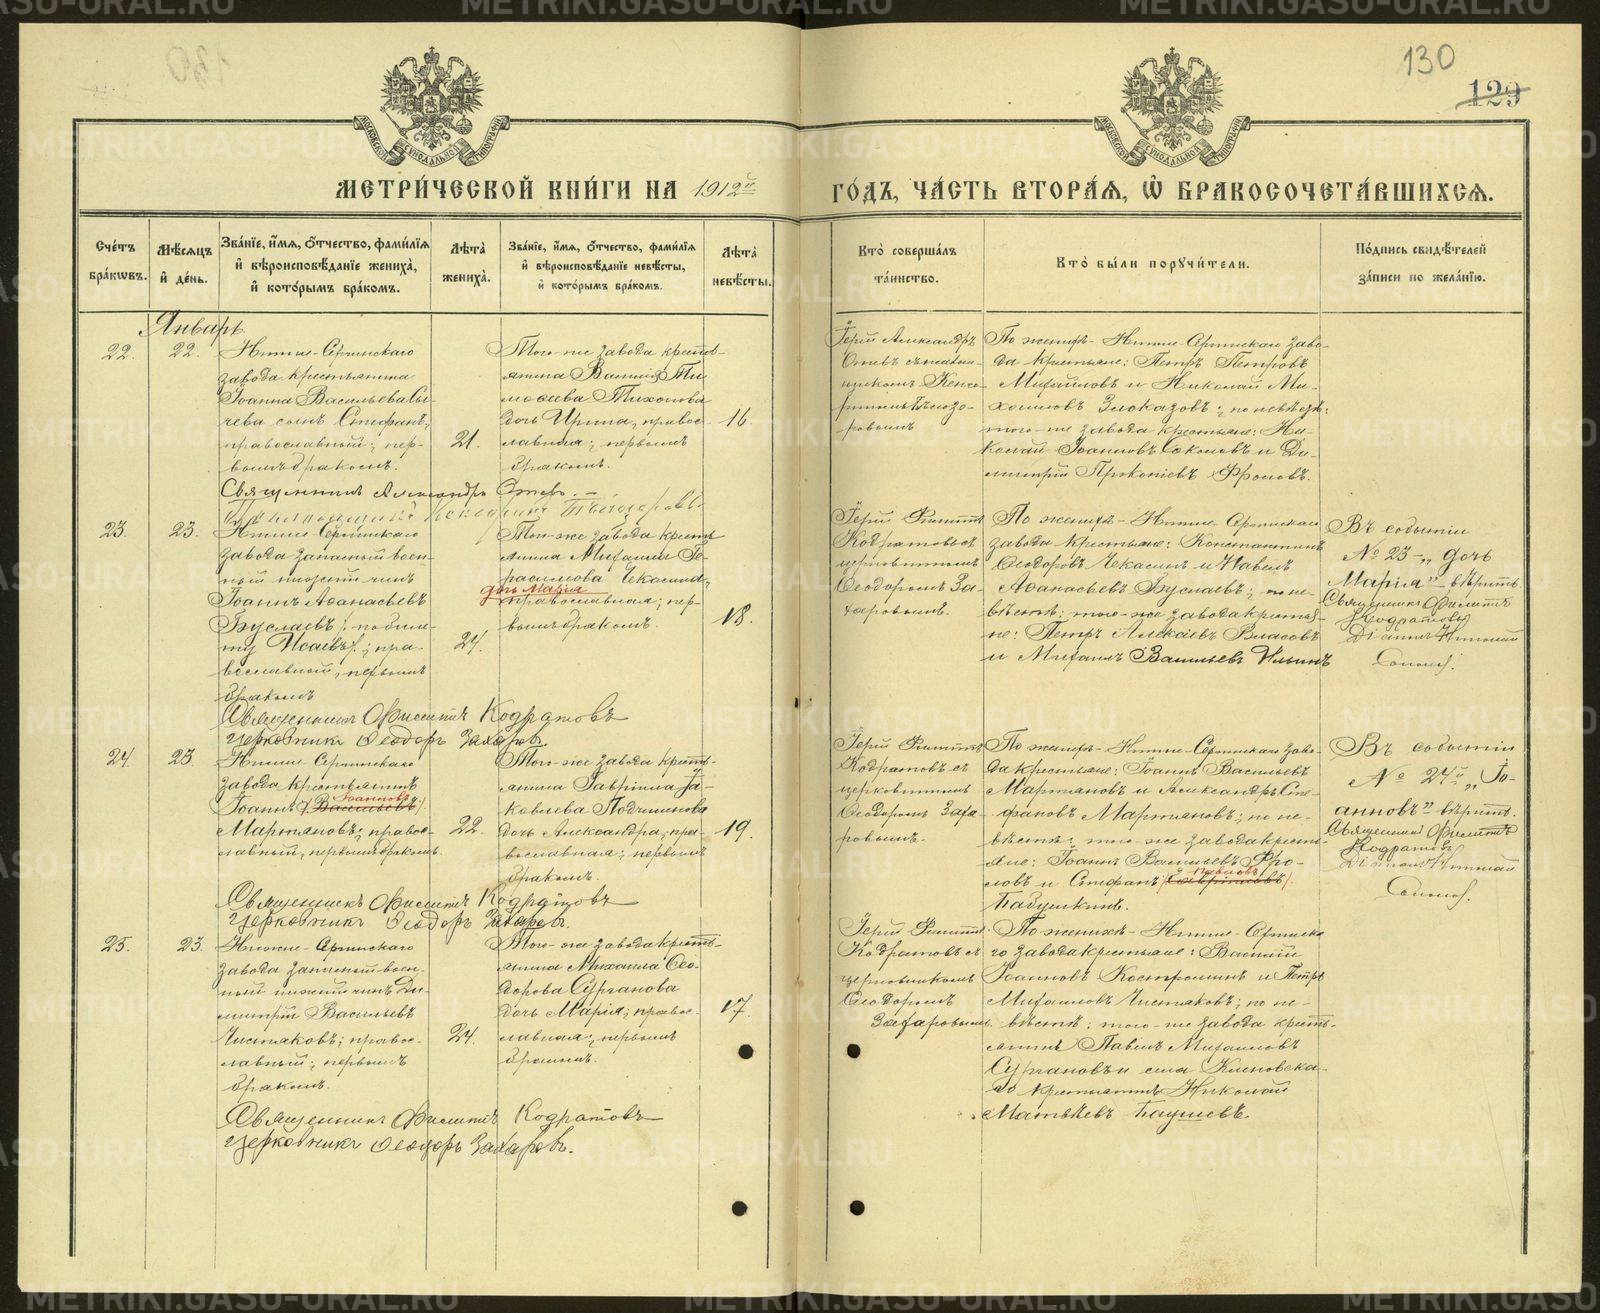 130
129
МЕТРИ́ЧЕСКОЙ КНИ́ГИ НА 1912й ГО́ДЪ, ЧА́СТЬ ВТОРА́Я, Ѡ БРАКОСОЧЕТА́ВШИХСЯ.
Сче́тъ бра́кѡвъ.
Мѣ́сяцъ и де́нь.
Зва́нїе, и́мя, о́тчество, фами́лїя и вѣроисповѣ́данїе жениха̀, и кото́рымъ бра́комъ.
Лѣта̀ жениха̀.
Зва́нїе, и́мя, о́тчество, фами́лїя и вѣроисповѣ́данїе невѣ́сты, и кото́рымъ бра́комъ.
Лѣта̀ невѣ́сты.
Кто̀ соверша́лъ та́инство.
Кто̀ бы́ли поручи́тели.
По́дпись свидѣ́телей за́писи по жела́нїю.
Январь
22.
22.
Нижне-Сергинскаго
завода крестьянина
Іоанна Васильева Сы-
чева сынъ Стефанъ,
православный; пер-
вымъ бракомъ.
21.
Того-же завода кресть-
янина Василія Ти-
моѳеева Тихонова
дочь Ирина, правос-
лавная; первымъ
бракомъ.
16.
Іерей Александръ
По женихѣ - Нижне-Сергинскаго заво-
да крестьяне: Петръ Петровъ
Михайловъ и Николай Ми-
хаиловъ Злоказовъ; по невѣстѣ:
того-же завода крестьяне: Ни-
колай Іоанновъ Соколовъ и Ди-
митрій Прокопіевъ Фроловъ.
Священникъ Александръ
23.
23.
Нижне-Сергинскаго
завода запасный воен-
ный нижній чинъ
Іоаннъ Аѳанасьевъ
Буслаевъ /по биле-
ту Исаевъ/; пра-
вославный, первымъ
бракомъ
24.
Того-же завода кресть-
янина Михаила Ге-
расимова Чекасина,
дочь Марія
православная; пер-
вымъ бракомъ.
18.
Іерей Филиппъ
Кодратовъ съ
церковникомъ
Ѳеодоромъ За-
харовымъ.
По женихѣ - Нижне-Сергинскаго
завода крестьяне: Константинъ
Ѳеодоровъ Чекасинъ и Павелъ
Аѳанасьевъ Буслаевъ; по не-
вѣстѣ: того-же завода крестья-
не: Петръ Алексѣевъ Власовъ
и Михаилъ Васильевъ Ильинъ
Въ событіи
№ 23 - „дочь
Марія" - вѣрить.
Священникъ Филиппъ
Кодратовъ
Священникъ Филиппъ Кодратовъ
Церковникъ Ѳеодоръ Захаровъ.
24.
23.
Нижне-Сергинскаго
завода крестьянинъ
Іоаннъ (Васильевъ) Іоанновъ
Мартяновъ; правос-
лавный, первымъ бракомъ.
22.
Того-же завода кресть-
янина Гавріила Іа-
ковлева Подчиненова
дочь Александра, пра-
вославная; первымъ
бракомъ.
19.
Іерей Филиппъ
Кодратовъ съ
церковникомъ
Ѳеодоромъ Заха-
ровымъ.
По женихѣ - Нижне-Сергинскаго заво-
да крестьяне: Іоаннъ Васильевъ
Мартяновъ и Александръ Сте-
фановъ Мартяновъ; по не-
вѣстѣ: того-же завода кресть-
яне: Іоаннъ Васильевъ Фро-
ловъ и Стефанъ Павловъ
Бабушкинъ.
Въ событіи
№ 24й „Іо-
анновъ" - вѣрить.
Священникъ Филиппъ
Кодратовъ
Священникъ Филиппъ Кодратовъ
Церковникъ Ѳеодоръ Захаровъ.
25.
23.
Нижне-Сергинскаго
завода запасный воен-
ный нижній чинъ Ди-
митрій Васильевъ
Чистяковъ; правос-
лавный; первымъ
бракомъ.
24.
Того-же завода кресть-
янина Михаила Ѳео-
дорова Сурганова
дочь Марія, правос-
лавная, первымъ
бракомъ.
17.
Іерей Филиппъ
Кодратовъ съ
церковникомъ
Ѳеодоромъ
Захаровымъ.
По женихѣ - Нижне-Сергинска-
го завода крестьяне: Василій
Іоанновъ Костроминъ и Петръ
Михаиловъ Чистяковъ; по не-
вѣстѣ: того-же завода кресть-
янинъ Павелъ Михаиловъ
Сургановъ и села Кленовска-
го крестьянинъ Николай
Матвѣевъ
Священникъ Филиппъ Кодратовъ
Церковникъ Ѳеодоръ Захаровъ.
METRIKI.GASO-URAL.RU